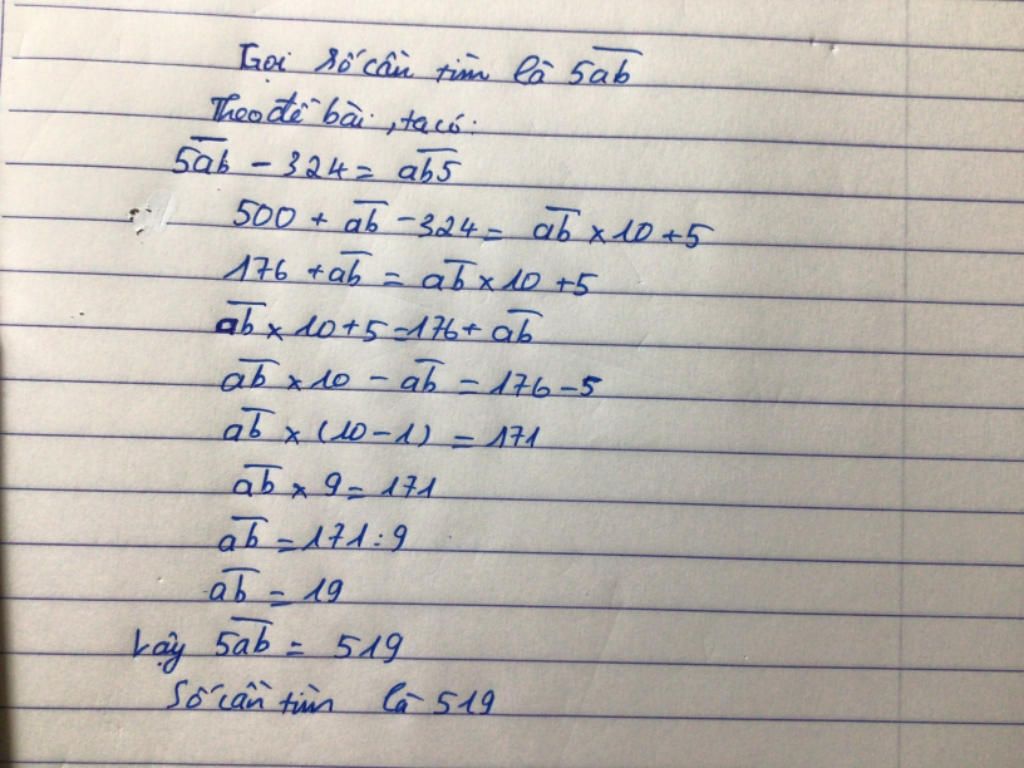 Gọi số cần tìm là 5ab̅
Theo đề bài, ta có:
5ab̅ - 324 = ab5̅
500 + ab̅ - 324 = ab̅ × 10 + 5
176 + ab̅ = ab̅ × 10 + 5
ab̅ × 10 + 5 = 176 + ab̅
ab̅ × 10 - ab̅ = 176 - 5
ab̅ × (10 - 1) = 171
ab̅ × 9 = 171
ab̅ = 171 : 9
ab̅ = 19
Vậy 5ab̅ = 519
Số cần tìm là 519